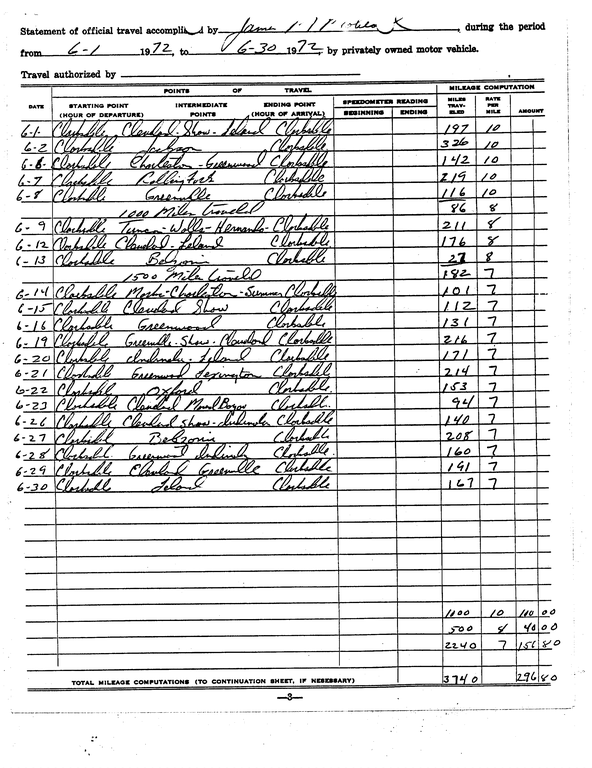 Statement of official travel accomplished by James, during the period
from 6-1 1972, to 6-30 1972, by privately owned motor vehicle.
Travel authorized by
POINTS OF TRAVEL MILEAGE COMPUTATION
DATE STARTING POINT (HOUR OF DEPARTURE) INTERMEDIATE POINTS ENDING POINT (HOUR OF ARRIVAL) SPEEDOMETER READING BEGINNING ENDING MILES TRAVELED RATE PER MILE AMOUNT
6-1 Clarksdale Cleveland-Shaw-Leland Clarksdale 197 10
6-2 Clarksdale Jackson Clarksdale 326 10
6-6 Clarksdale Charleston-Greenwood Clarksdale 142 10
6-7 Clarksdale Rolling Fork Clarksdale 219 10
6-8 Clarksdale Greenville Clarksdale 116 10
1000 Miles Traveled 86 8
6-9 Clarksdale Tunica-Walls-Hernando-Clarksdale 211 8
6-12 Clarksdale Cleveland-Leland Clarksdale 176 8
6-13 Clarksdale Belzoni Clarksdale 27 8
1500 Miles Traveled 182 7
6-14 Clarksdale Marks-Charleston-Sumner Clarksdale 101 7
6-15 Clarksdale Cleveland Shaw Clarksdale 112 7
6-16 Clarksdale Greenwood Clarksdale 131 7
6-19 Clarksdale Greenville-Shaw-Cleveland Clarksdale 216 7
6-20 Clarksdale Indianola-Leland Clarksdale 171 7
6-21 Clarksdale Greenwood Lexington Clarksdale 214 7
6-22 Clarksdale Oxford Clarksdale 153 7
6-23 Clarksdale Cleveland Mound Bayou Clarksdale 94 7
6-26 Clarksdale Cleveland Shaw-Indianola Clarksdale 140 7
6-27 Clarksdale Belzoni Clarksdale 208 7
6-28 Clarksdale Greenwood Clarksdale 160 7
6-29 Clarksdale Cleveland Greenville Clarksdale 191 7
6-30 Clarksdale Leland Clarksdale 167 7
1000 10 100 00
500 8 40 00
2240 7 156 80
TOTAL MILEAGE COMPUTATIONS (TO CONTINUATION SHEET, IF NESESSARY) 3740 296 80
—3—